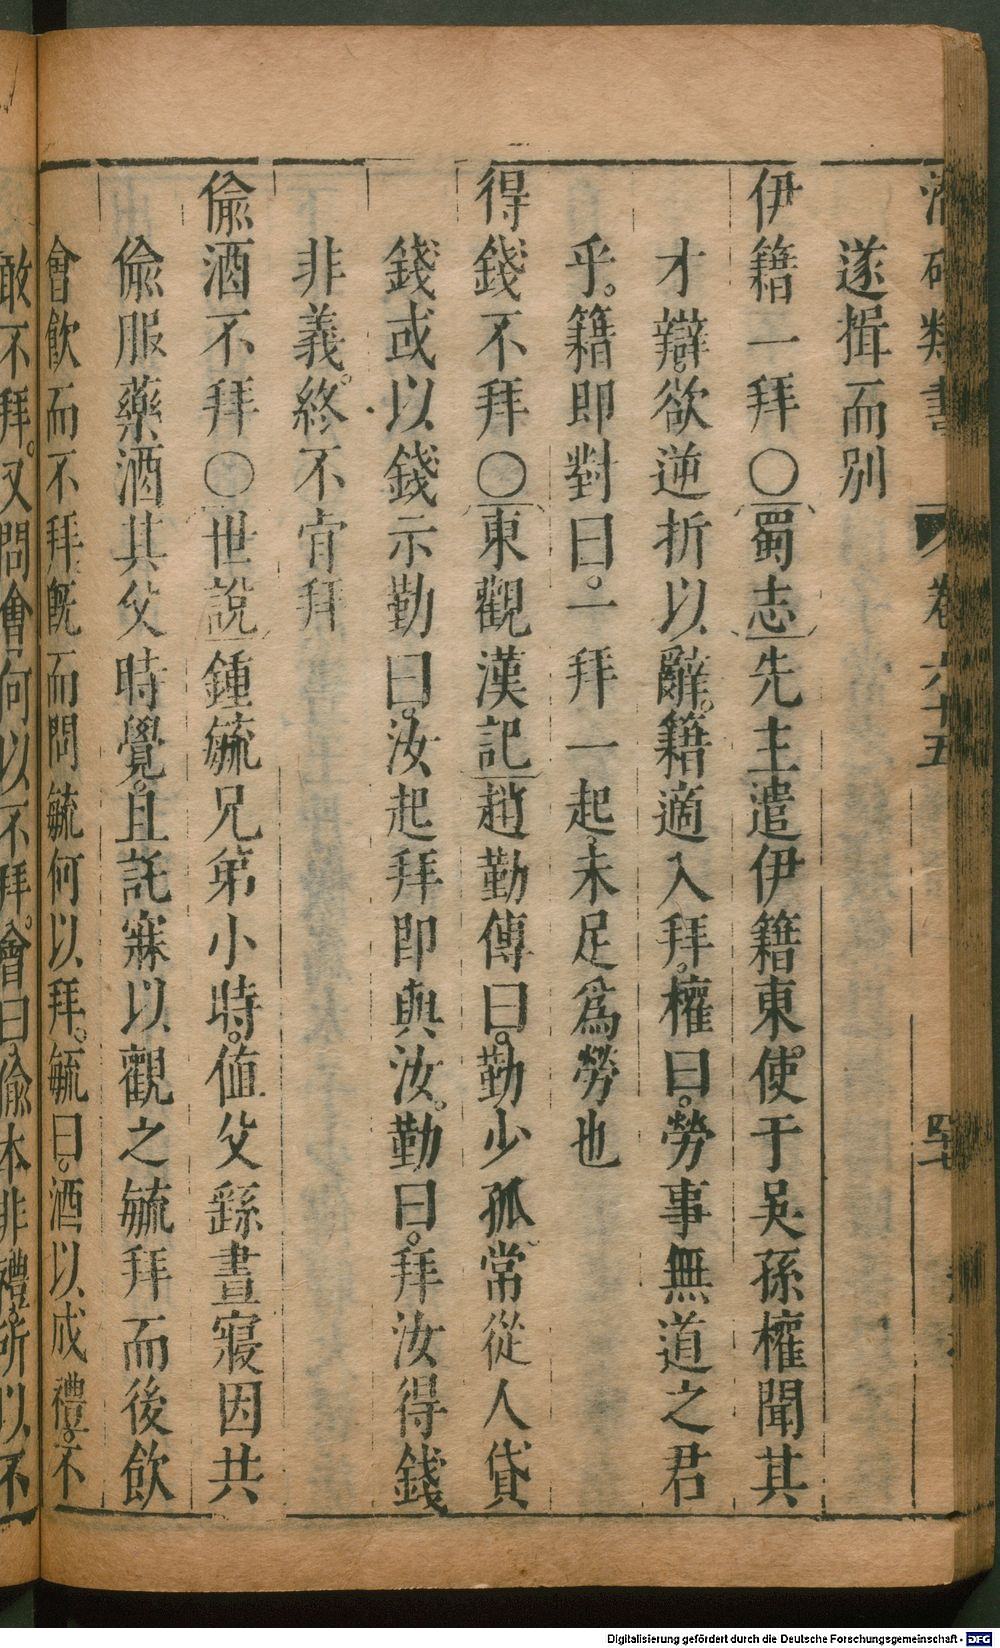 潛確類書 卷六十五
遂揖而別
伊籍一拜○蜀志先主遣伊籍東使于吳孫權聞其
才辯欲逆折以辭籍適入拜權曰勞事無道之君
乎籍即對曰一拜一起未足爲勞也
得錢不拜○東觀漢記趙勤傳曰勤少孤常從人貸
錢或以錢示勤曰汝起拜即與汝勤曰拜汝得錢
非義終不肯拜
偷酒不拜○世說鍾毓兄弟小時值父繇晝寢因共
偷服藥酒其父時覺且託寐以觀之毓拜而後飲
會飲而不拜旣而問毓何以拜毓曰酒以成禮不
敢不拜又問會何以不拜會曰偷本非禮所以不
Digitalisierung gefördert durch die Deutsche Forschungsgemeinschaft - DFG